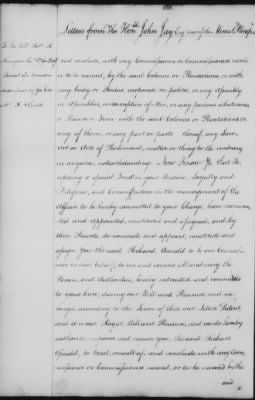 Letters from The Hon.ble John Jay Esq. one of the
and conclude, with any Commissioner or Commissioners named
or to be named, by the said Colonies or Plantations, or with
any body or Bodies, corporate or politic, or any Assembly
or Assemblies, or description of Men, or any person whatsoever
a Peace or Truce with the said Colonies or Plantations, or
any of them, or any part or parts thereof, any Law,
Act or Acts of Parliament, matter or thing to the contrary
in anywise, notwithstanding. Now Know Ye that We,
reposing a special Trust in your Wisdom, Loyalty and
Diligence, and in the management of the
Affairs to be hereby committed to your Charge, have nomina-
ted and Appointed, constituted and assigned, and by
these Presents do nominate and appoint, constitute and
assign you the said Richard Oswald to be our Commissi-
oner in that behalf, to use and exercise all and every the
Powers and Authorities, hereby entrusted and committed
to you the said Richard
during our Will and Pleasure and no
longer, according to the Tenor of these our Letters Patent,
and it is our Royal Will and Pleasure, and we do hereby
authorize, empower and require you the said Richard
Oswald, to treat, consult of, and conclude with any Com-
missioner or Commissioners named, or to be named by the
said